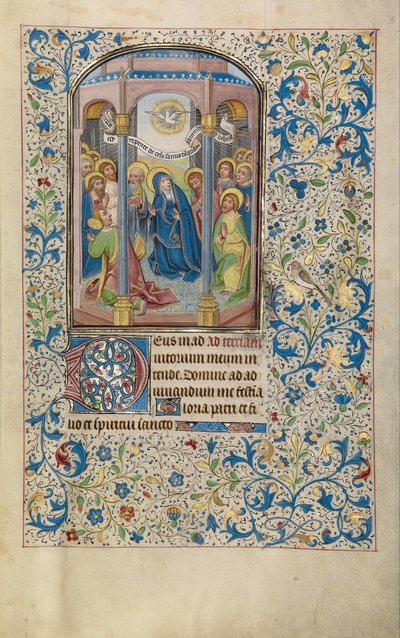 repente de celo sonus
Deus in ad Ad terciam
iutorium meum in
tende. Domine ad ad
iuuandum me festi a
loria patri et fi
lio et spiritui sancto